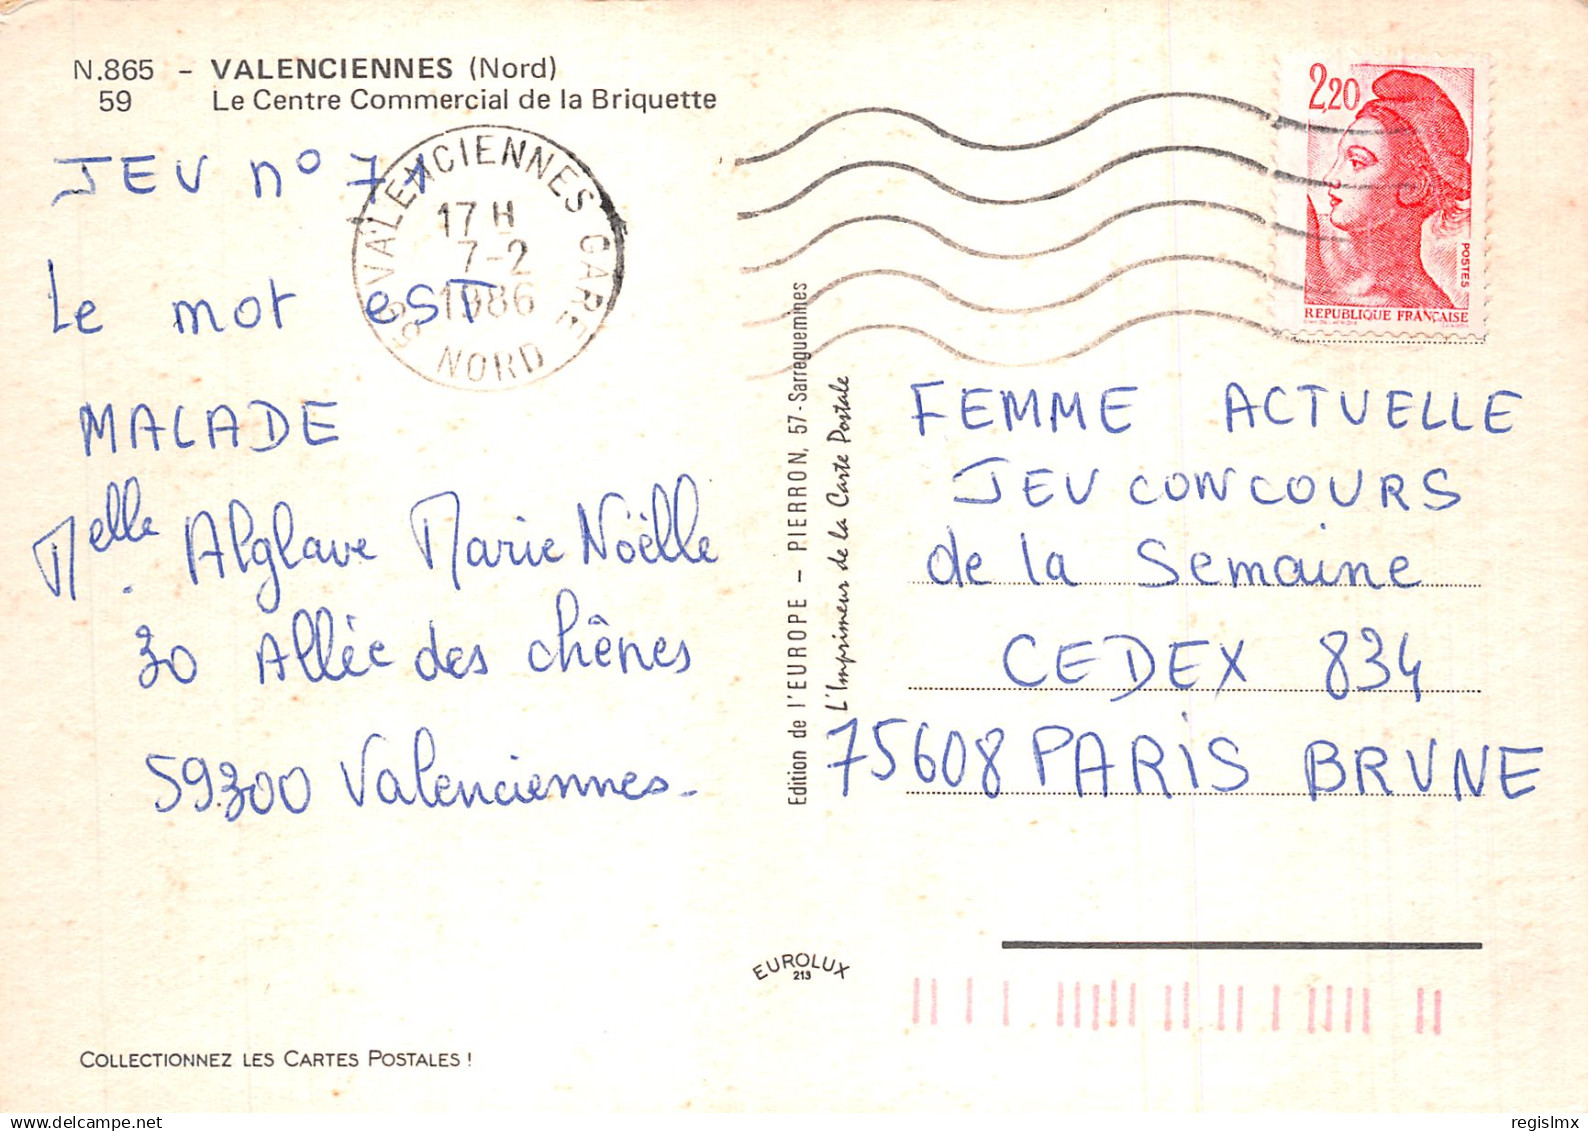 N.865 - VALENCIENNES (Nord)
59 Le Centre Commercial de la Briquette
JEU n° 71
Le mot est
MALADE
Melle. Alglave Marie Noëlle
30 Allée des chênes
59300 Valenciennes.
COLLECTIONNEZ LES CARTES POSTALES !
59 VALENCIENNES GARE
17 H
7-2
1986
NORD
Edition de l'EUROPE – PIERRON, 57 - Sarreguemines
L'Imprimeur de la Carte Postale
EUROLUX
213
2,20
POSTES
REPUBLIQUE FRANÇAISE
FEMME ACTUELLE
JEU CONCOURS
de la Semaine
CEDEX 834
75608 PARIS BRUNE
www.delcampe.net
regislmx